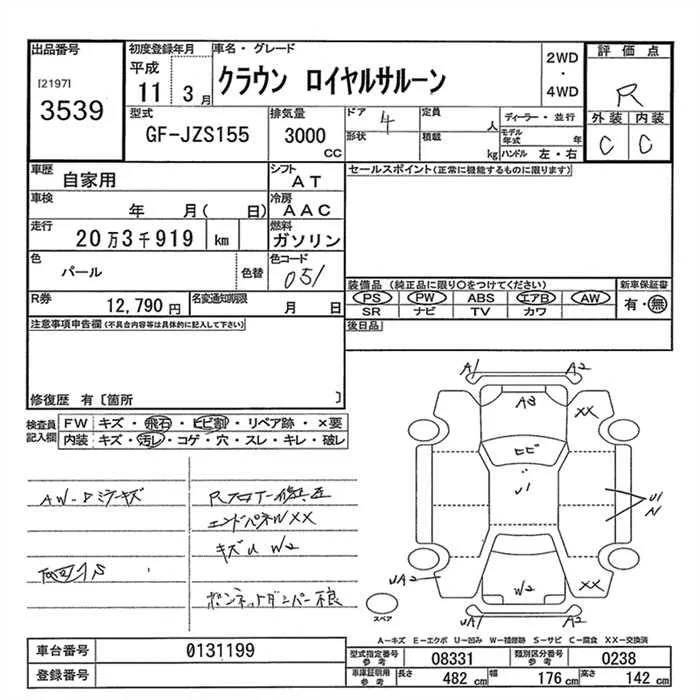 出品番号
[2197]
3539
初度登録年月
平成
11 3 月
車名・グレード
クラウン ロイヤルサルーン
2WD
・
4WD
評価点
R
外装 内装
C C
型式
GF-JZS155
排気量
3000
CC
ドア 4
形状
定員
人
積載
kg
ディーラー・並行
モデル
年式 年
ハンドル 左・右
車歴
自家用
シフト
AT
車検
年 月( 日)
冷房
AAC
走行
20万3千919 km
燃料
ガソリン
色
パール
色替
色コード
051
R券
12,790 円
名変通知期限
月 日
セールスポイント(正常に機能するものに限ります)
装備品 (純正品に限り○をつけてください)
PS PW ABS エアB AW
SR ナビ TV カワ
新車保証書
有・無
後日品
注意事項申告欄(不具合内容等は具体的に記入して下さい)
修復歴 有〔箇所 〕
検査員
記入欄
FW キズ・飛石・ヒビ割・リペア跡・×要
内装 キズ・汚レ・コゲ・穴・スレ・キレ・破レ
エンドパネW XX
キズU W2
ボンネットダンパー不良
A1
A2
AB
XX
ヒビ
U1
U1
UA2
W2
XX
UA1
A2
スペア
A-キズ E-エクボ U-凹み W-補修跡 S-サビ C-腐食 XX-交換済
車台番号
0131199
登録番号
型式指定番号
参考
08331
類別区分番号
参考
0238
車庫証明用
参考
長さ 482 cm
幅 176 cm
高さ 142 cm